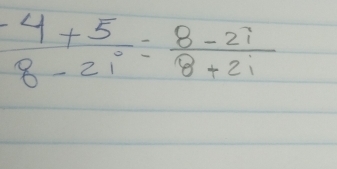 -4 + 5 / 8 - 2i = 8 - 2i / 8 + 2i